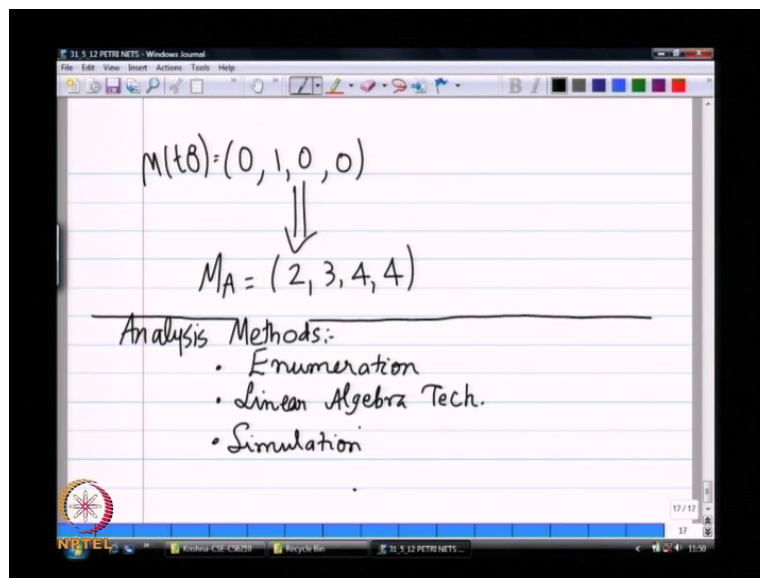 31_5_12 PETRI NETS - Windows Journal
File Edit View Insert Actions Tools Help
B I
M(tB)=(0, 1, 0, 0)
M_A = (2, 3, 4, 4)
Analysis Methods:-
• Enumeration
• Linear Algebra Tech.
• Simulation
17/17
17
NPTEL
Krishna-CSE-CS6210
Recycle Bin
31_5_12 PETRI NETS ...
11:50